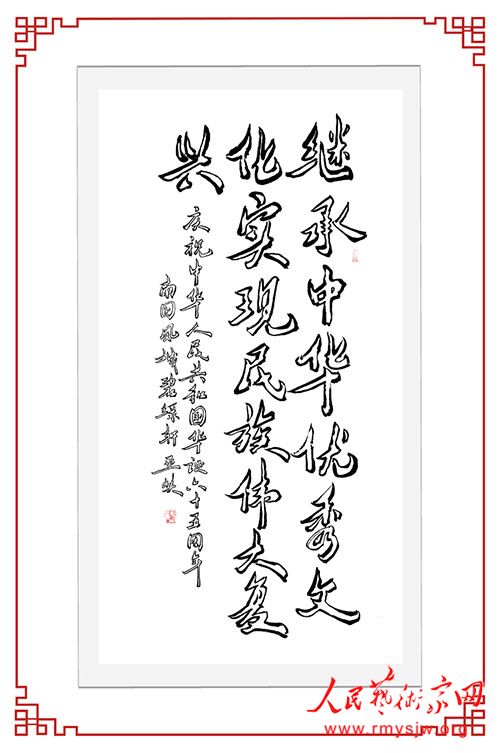 继承中华优秀文
化实现民族伟大复
兴
庆祝中华人民共和国华诞六十五周年
南国凤城碧绿轩
人民艺术家网
www.rmysjw.org